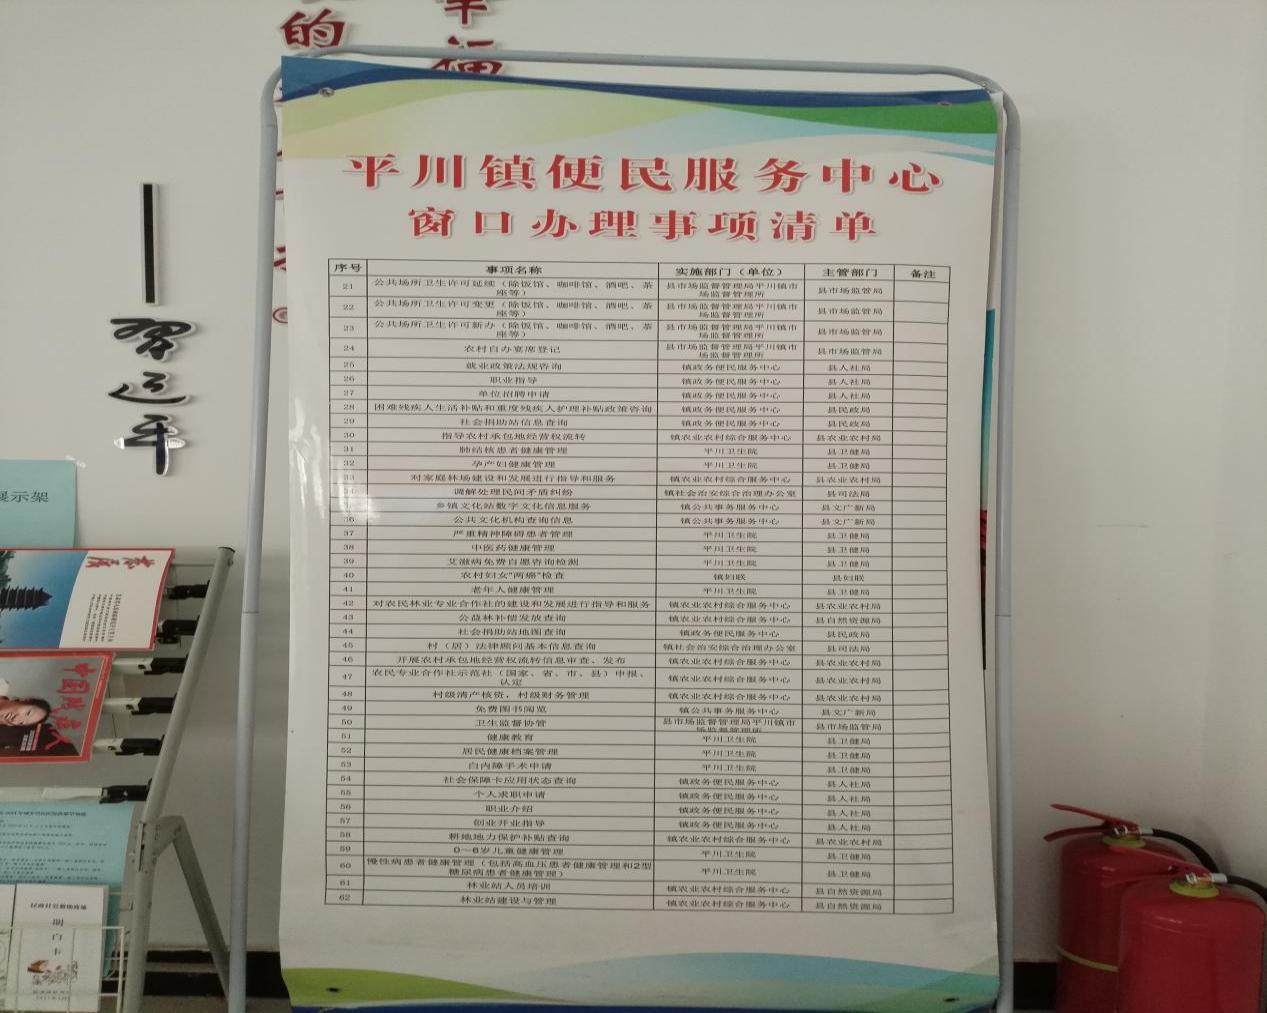 平川镇便民服务中心
窗口办理事项清单
序号 事项名称 实施部门（单位） 主管部门 备注
21 公共场所卫生许可延续（除饭馆、咖啡馆、酒吧、茶座等） 县市场监督管理局平川镇市场监督管理所 县市场监管局
22 公共场所卫生许可变更（除饭馆、咖啡馆、酒吧、茶座等） 县市场监督管理局平川镇市场监督管理所 县市场监管局
23 公共场所卫生许可新办（除饭馆、咖啡馆、酒吧、茶座等） 县市场监督管理局平川镇市场监督管理所 县市场监管局
24 农村自办宴席登记 县市场监督管理局平川镇市场监督管理所 县市场监管局
25 就业政策法规咨询 镇政务便民服务中心 县人社局
26 职业指导 镇政务便民服务中心 县人社局
27 单位招聘申请 镇政务便民服务中心 县人社局
28 困难残疾人生活补贴和重度残疾人护理补贴政策咨询 镇政务便民服务中心 县民政局
29 社会捐助站信息查询 镇政务便民服务中心 县民政局
30 指导农村承包地经营权流转 镇农业农村综合服务中心 县农业农村局
31 肺结核患者健康管理 平川卫生院 县卫健局
32 孕产妇健康管理 平川卫生院 县卫健局
33 对家庭林场建设和发展进行指导和服务 镇农业农村综合服务中心 县农业农村局
34 调解处理民间矛盾纠纷 镇社会治安综合治理办公室 县司法局
35 乡镇文化站数字文化信息服务 镇公共事务服务中心 县文广新局
36 公共文化机构查询信息 镇公共事务服务中心 县文广新局
37 严重精神障碍患者管理 平川卫生院 县卫健局
38 中医药健康管理 平川卫生院 县卫健局
39 艾滋病免费自愿咨询检测 平川卫生院 县卫健局
40 农村妇女"两癌"检查 镇妇联 县妇联
41 老年人健康管理 平川卫生院 县卫健局
42 对农民林业专业合作社的建设和发展进行指导和服务 镇农业农村综合服务中心 县农业农村局
43 公益林补偿发放查询 镇农业农村综合服务中心 县自然资源局
44 社会捐助站地图查询 镇政务便民服务中心 县民政局
45 村（居）法律顾问基本信息查询 镇社会治安综合治理办公室 县司法局
46 开展农村承包地经营权流转信息审查、发布 镇农业农村综合服务中心 县农业农村局
47 农民专业合作社示范社（国家、省、市、县）申报、认定 镇农业农村综合服务中心 县农业农村局
48 村级清产核资，村级财务管理 镇农业农村综合服务中心 县农业农村局
49 免费图书阅览 镇公共事务服务中心 县文广新局
50 卫生监督协管 县市场监督管理局平川镇市场监督管理所 县市场监管局
51 健康教育 平川卫生院 县卫健局
52 居民健康档案管理 平川卫生院 县卫健局
53 白内障手术申请 平川卫生院 县卫健局
54 社会保障卡应用状态查询 镇政务便民服务中心 县人社局
55 个人求职申请 镇政务便民服务中心 县人社局
56 职业介绍 镇政务便民服务中心 县人社局
57 创业开业指导 镇政务便民服务中心 县人社局
58 耕地地力保护补贴查询 镇农业农村综合服务中心 县农业农村局
59 0～6岁儿童健康管理 平川卫生院 县卫健局
60 慢性病患者健康管理（包括高血压患者健康管理和2型糖尿病患者健康管理） 平川卫生院 县卫健局
61 林业站人员培训 镇农业农村综合服务中心 县自然资源局
62 林业站建设与管理 镇农业农村综合服务中心 县自然资源局
的
幸福
一 习近平
展示架
明白卡